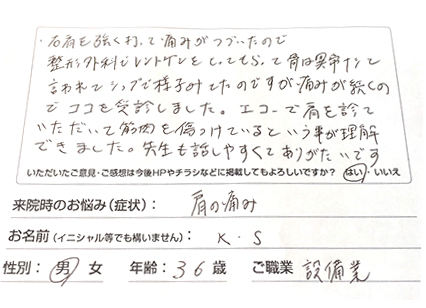 ・右肩を強く打って痛みがつづいたので
整形外科でレントゲンをとってもらって骨は異常ナシと
言われてシップで様子みてたのですが痛みが続くの
でココを受診しました。エコーで肩を診て
いただいて筋肉を傷つけているという事が理解
できました。先生も話しやすくてありがたいです
いただいたご意見・ご感想は今後HPやチラシなどに掲載してもよろしいですか？ はい・いいえ
来院時のお悩み（症状）： 肩の痛み
お名前（イニシャル等でも構いません）： K．S
性別： 男 女 年齢： 36 歳 ご職業 設備業